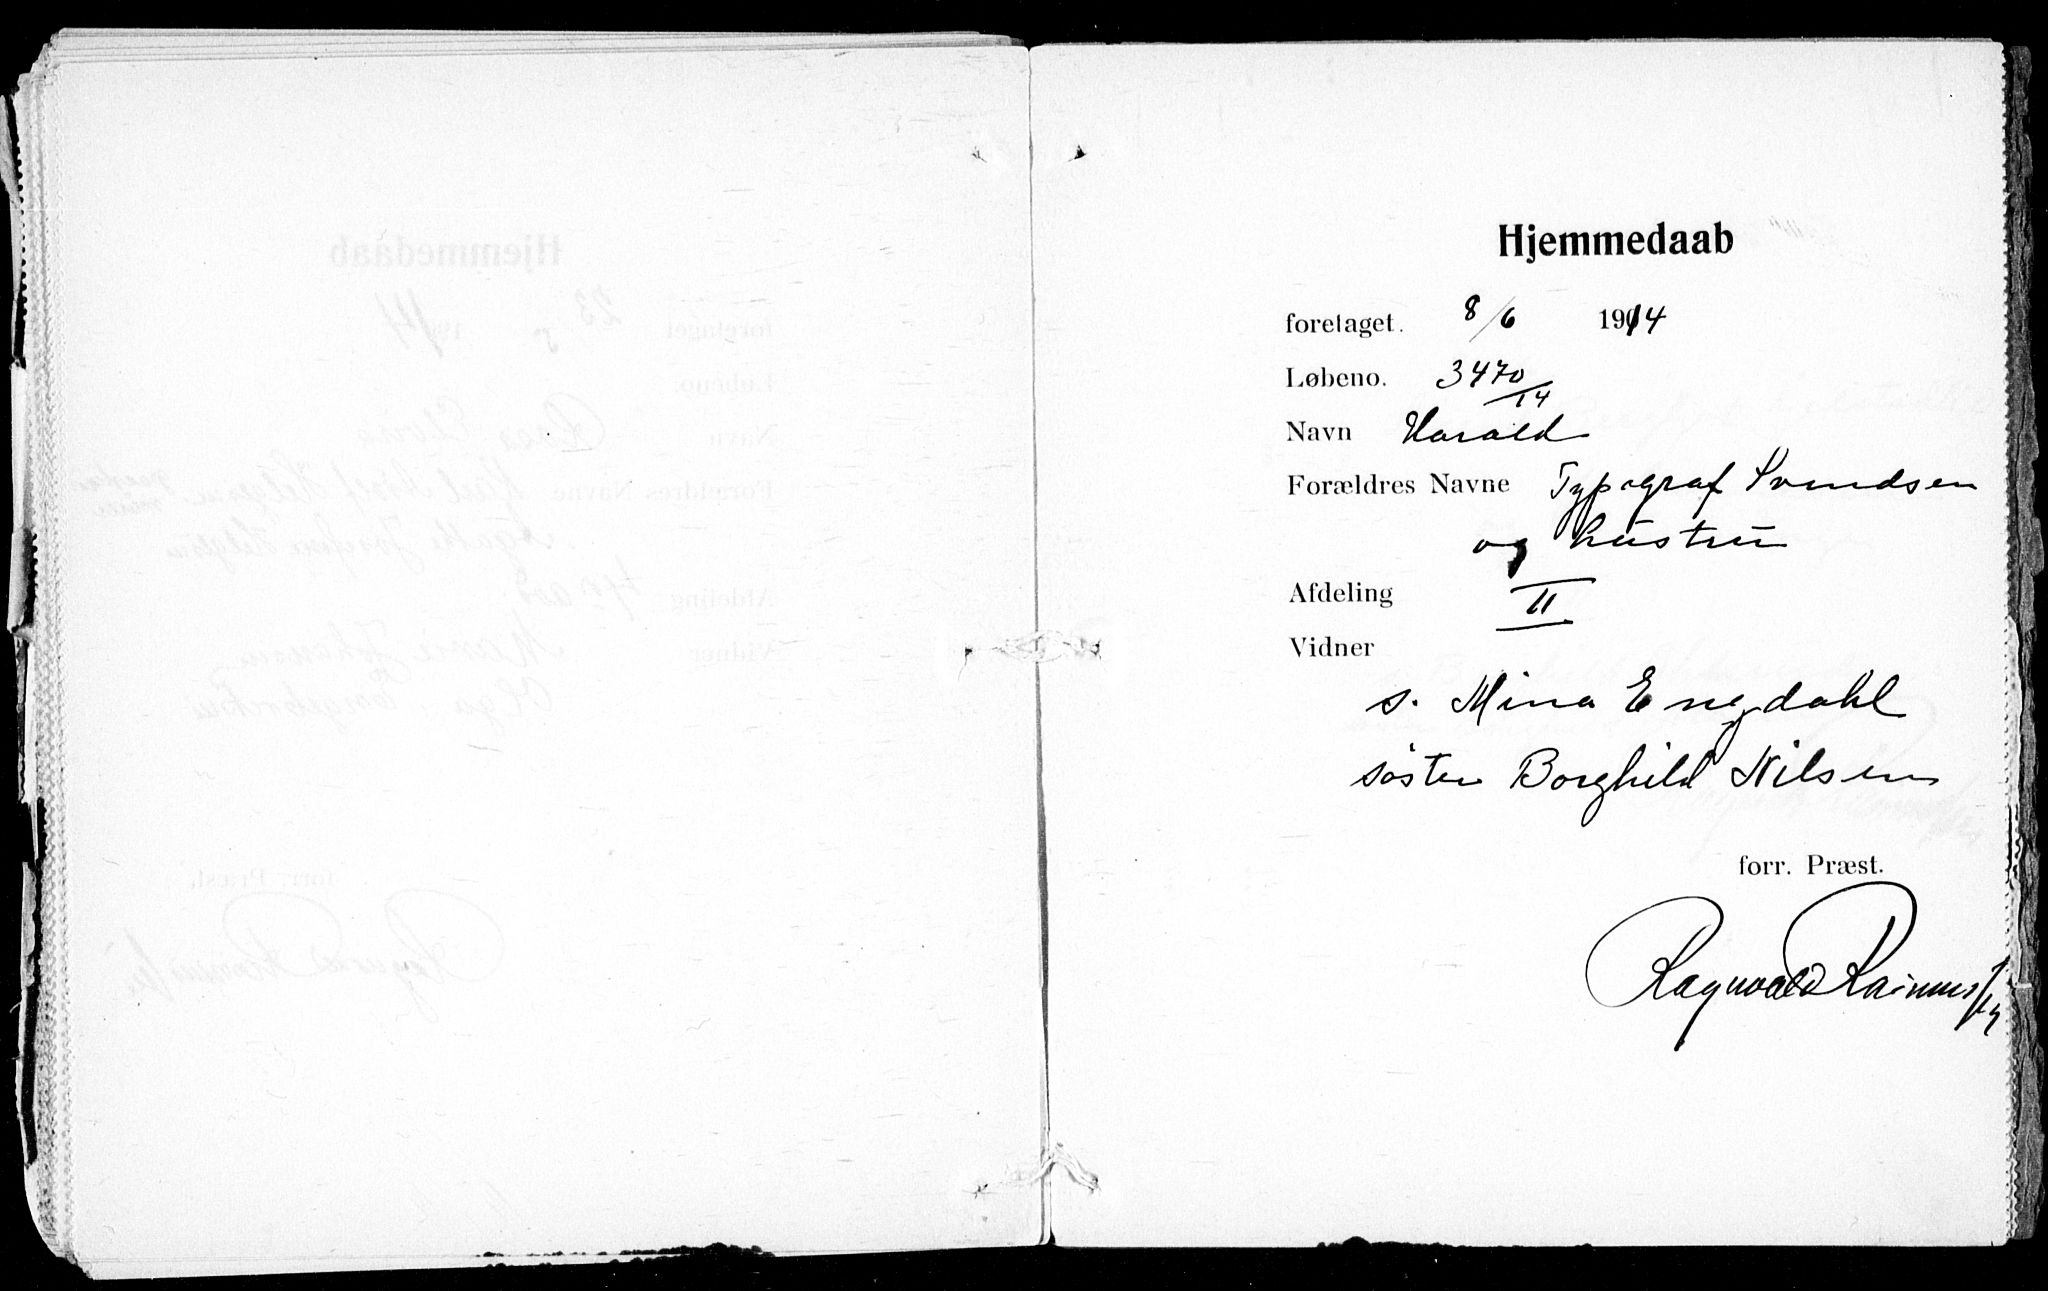 Hjemmedaab
foretaget. 8/6 1914
Løbeno. 3470/14
Navn Harald
Forældres Navne Typograf Svendsen
og hustru
Afdeling II
Vidner
s. Mina Engdahl
søster Borghild Nilsen
forr. Præst.
Ragnvald